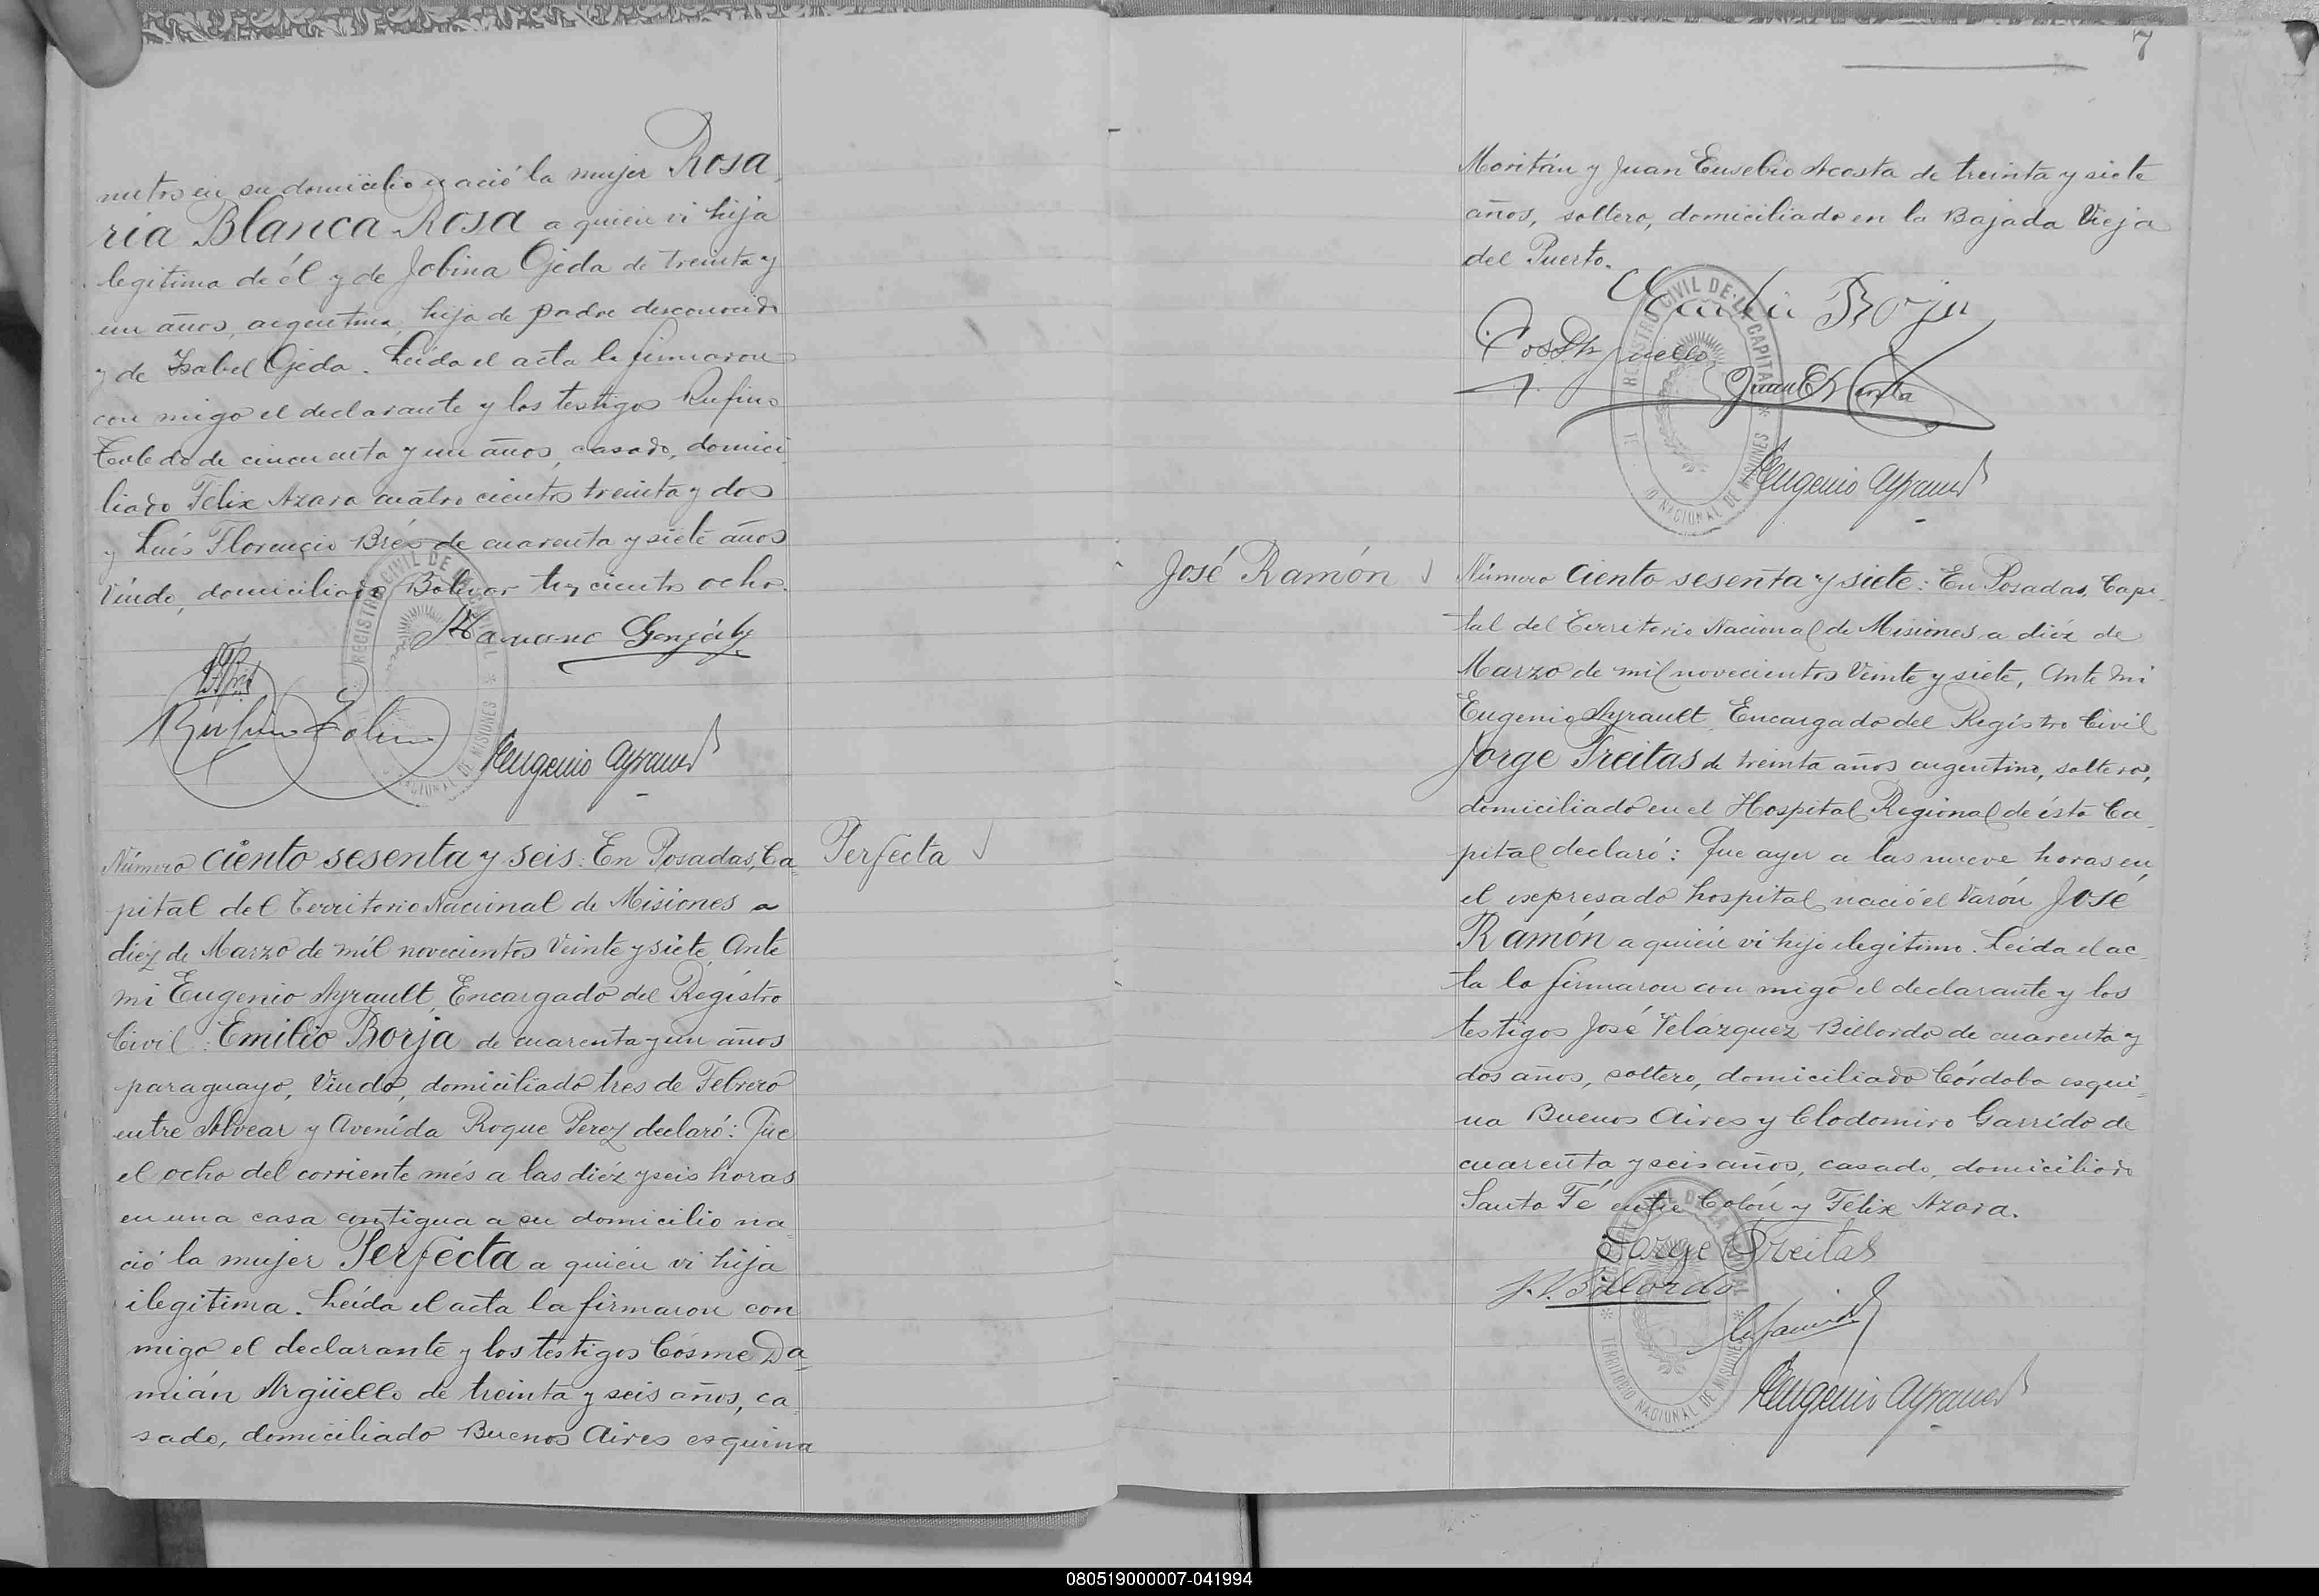 nutos en su domicilio nació la mujer Rosa
ria Blanca Rosa a quien vi hija
legitima de él y de Jobina Ojeda de treinta y
un años, argentina, hija de padre desconocido
y de Isabel Ojeda. Leída el acta la firmaron
con migo el declarante y los testigos Rufino
Toledo de cincuenta y un años, casado, domici
liado Félix Azara cuatro cientos treinta y dos
y Luís Florencio Brés de cuarenta y siete años
Viudo, domiciliado Bolivar tres cientos ocho.
Mariano González
Rufino Toledo
Eugenio Ayrault
Número ciento sesenta y seis: En Posadas, Ca=
pital del Territorio Nacional de Misiones a
diez de Marzo de mil novecientos Veinte y siete, Ante
mi Eugenio Ayrault, Encargado del Registro
Civil: Emilio Borja de cuarenta y un años
paraguayo, Viudo, domiciliado tres de Febrero
entre Alvear y Avenida Roque Perez declaró: Que
el ocho del corriente més a las diéz y seis horas
en una casa contigua a su domicilio na=
ció la mujer Perfecta a quien vi hija
ilegitima. Leída el acta la firmaron con
migo el declarante y los testigos Cósme Da=
mián Argüello de treinta y seis años, ca
sado, domiciliado Buenos Aires esquina
Perfecta
7
Moritán y Juan Eusebio Acosta de treinta y siete
años, soltero, domiciliado en la Bajada Vieja
del Puerto.
Emilio Borja
Juan E Acosta
REGISTRO CIVIL DE LA CAPITAL
NACIONAL DE MISIONES
Eugenio Ayrault
José Ramón
Número Ciento sesenta y siete: En Posadas, Capi
tal del Territorio Nacional de Misiones a diéz de
Marzo de mil novecientos Veinte y siete, Ante mi
Eugenio Ayrault, Encargado del Registro Civil
Jorge Freitas de treinta años argentino, soltero,
domiciliado en el Hospital Regional de ésta Ca
pital declaró: Que ayer a las nueve horas en
el expresado hospital nació el Varón José
Ramón a quien vi hijo ilegitimo. Leida el ac
ta la firmaron con migo el declarante y los
testigos José Velázquez Billordo de cuarenta y
dos años, soltero, domiciliado Córdoba esqui=
na Buenos Aires y Clodomiro Garrido de
cuarenta y seis años, casado, domiciliado
Santa Fé entre Colón y Félix Azara.
Jorge Freitas
J. V. Billordo
Eugenio Ayrault
TERRITORIO NACIONAL DE MISIONES
080519000007-041994